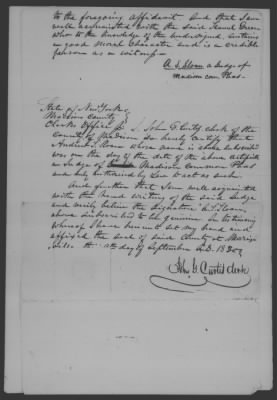 to the foregoing affidavit and that I am
well acquainted with the said
who to the knowledge of the undersigned sustains
a good moral character and is a credible
person as a witness
A. S. Sloan a Judge of
Madison Com Pleas
State of New York
Madison County
Clerks Office I, John G Curtis clerk of the
County of Madison do hereby Certify that
Andrew S. Sloan whose name is
was on the day of the date of the above
a Judge of Madison Common Pleas
and duly authorised by Law to act as such
And further that I am well acquainted
with the hand writing of the said Judge
and verily believe the signature A. S. Sloan
above subscribed to be genuine. In testimony
whereof I have hereunto set my hand and
affixed the seal of said County at Morris
ville the day of September A.D. 18
John G. Curtis clerk